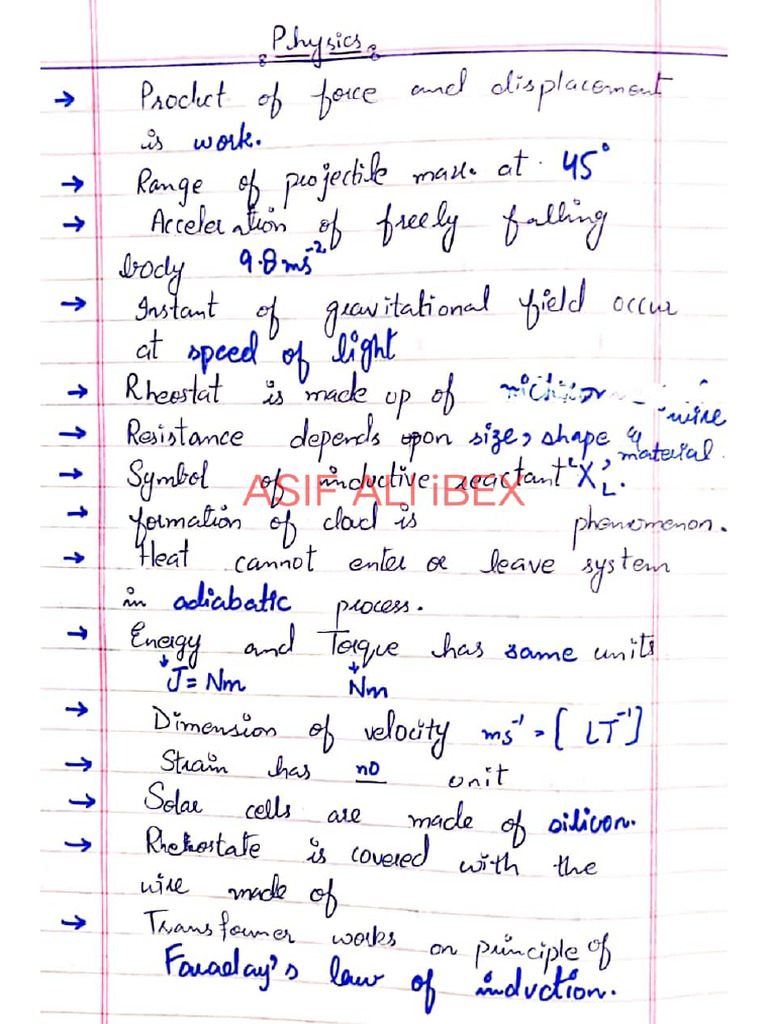 Physics
→ Product of force and displacement
is work.
→ Range of projectile max. at 45°
→ Acceleration of freely falling
body 9.8 ms⁻²
→ Instant of gravitational field occur
at speed of light
→ Rheostat is made up of
wire
→ Resistance depends upon size, shape &
material.
→ Symbol of inductive reactant 'X_L'.
ASIF ALI iBEX
→ formation of cloud is phenomenon.
→ Heat cannot enter or leave system
in adiabatic process.
→ Energy and Torque has same units
↓ ↓
J = Nm Nm
→ Dimension of velocity ms⁻¹ = [LT⁻¹]
→ Strain has no unit
→ Solar cells are made of silicon.
→ is covered with the
wire made of
→ Transformer works on principle of
Faraday's law of induction.